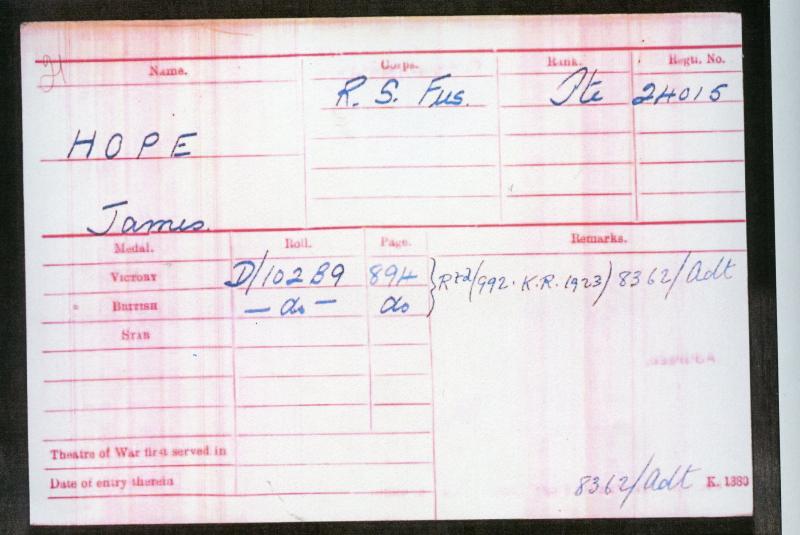 21
Name. Corps. Rank. Regtl. No.
R. S. Fus. Pte 24015
HOPE
James.
Medal. Roll. Page. Remarks.
VICTORY D/102B9 894 } Rtd/(992. K.R. 1923) 8362/Adt
BRITISH — do — do
STAR
Theatre of War first served in
Date of entry therein
8362/Adt K. 1380